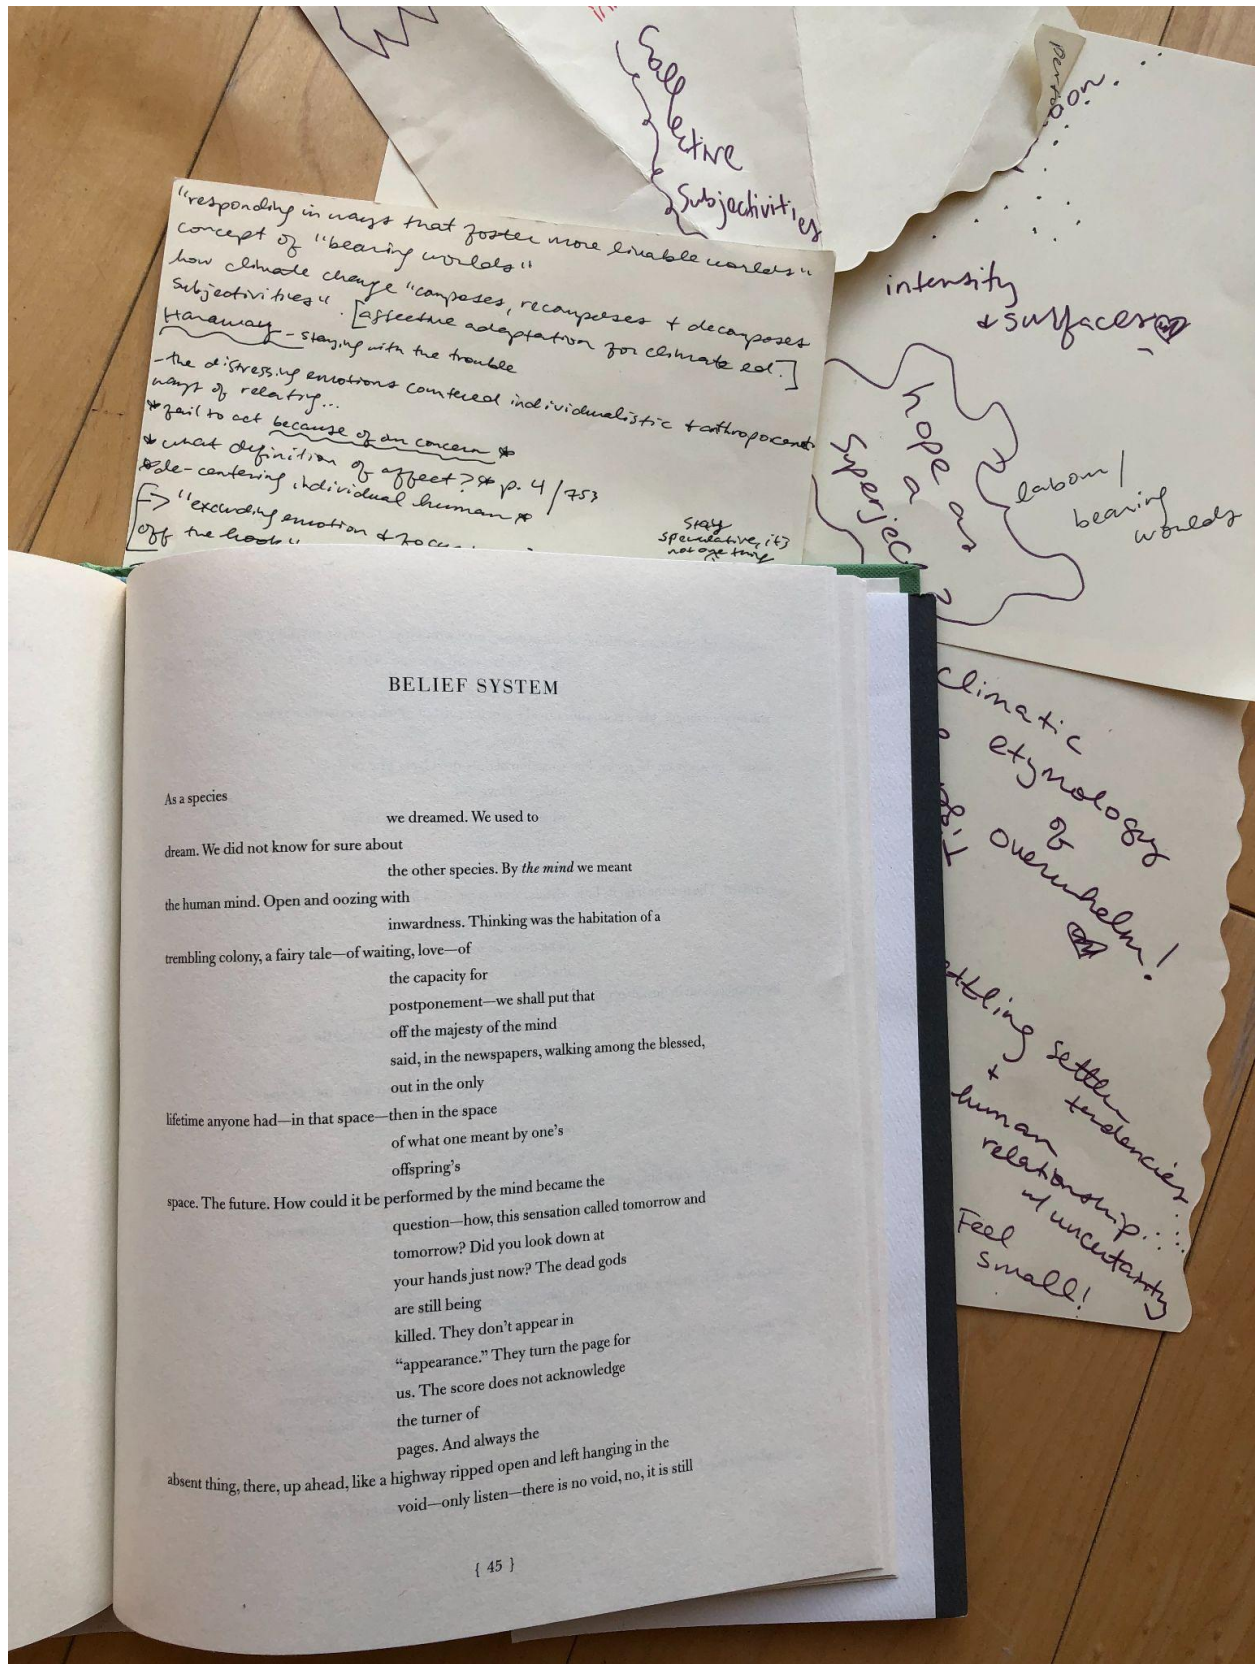 Collective
Subjectivities
on
intensity
+ surfaces
"responding in ways that foster more livable worlds"
concept of "bearing worlds"
how climate change "composes, recomposes + decomposes
subjectivities". [affective adaptation for climate ed.]
Haraway - staying with the trouble
- the distressing emotions countered individualistic + anthropocent
ways of relating...
*fail to act because of our concern *
* what definition of affect? * p. 4 / 753
*de-centering individual human *
"excluding emotion +
off the hook"
Stay
speculative, it's
not one thing
hope as
a
Superject?
labour /
bearing
worlds
Climatic
etymology
of
Overwhelm!
settler
tendencies
+
human
relationship....
w/ uncertainty
Feel
small!
BELIEF SYSTEM
As a species
we dreamed. We used to
dream. We did not know for sure about
the other species. By the mind we meant
the human mind. Open and oozing with
inwardness. Thinking was the habitation of a
trembling colony, a fairy tale—of waiting, love—of
the capacity for
postponement—we shall put that
off the majesty of the mind
said, in the newspapers, walking among the blessed,
out in the only
lifetime anyone had—in that space—then in the space
of what one meant by one's
offspring's
space. The future. How could it be performed by the mind became the
question—how, this sensation called tomorrow and
tomorrow? Did you look down at
your hands just now? The dead gods
are still being
killed. They don't appear in
"appearance." They turn the page for
us. The score does not acknowledge
the turner of
pages. And always the
absent thing, there, up ahead, like a highway ripped open and left hanging in the
void—only listen—there is no void, no, it is still
{ 45 }